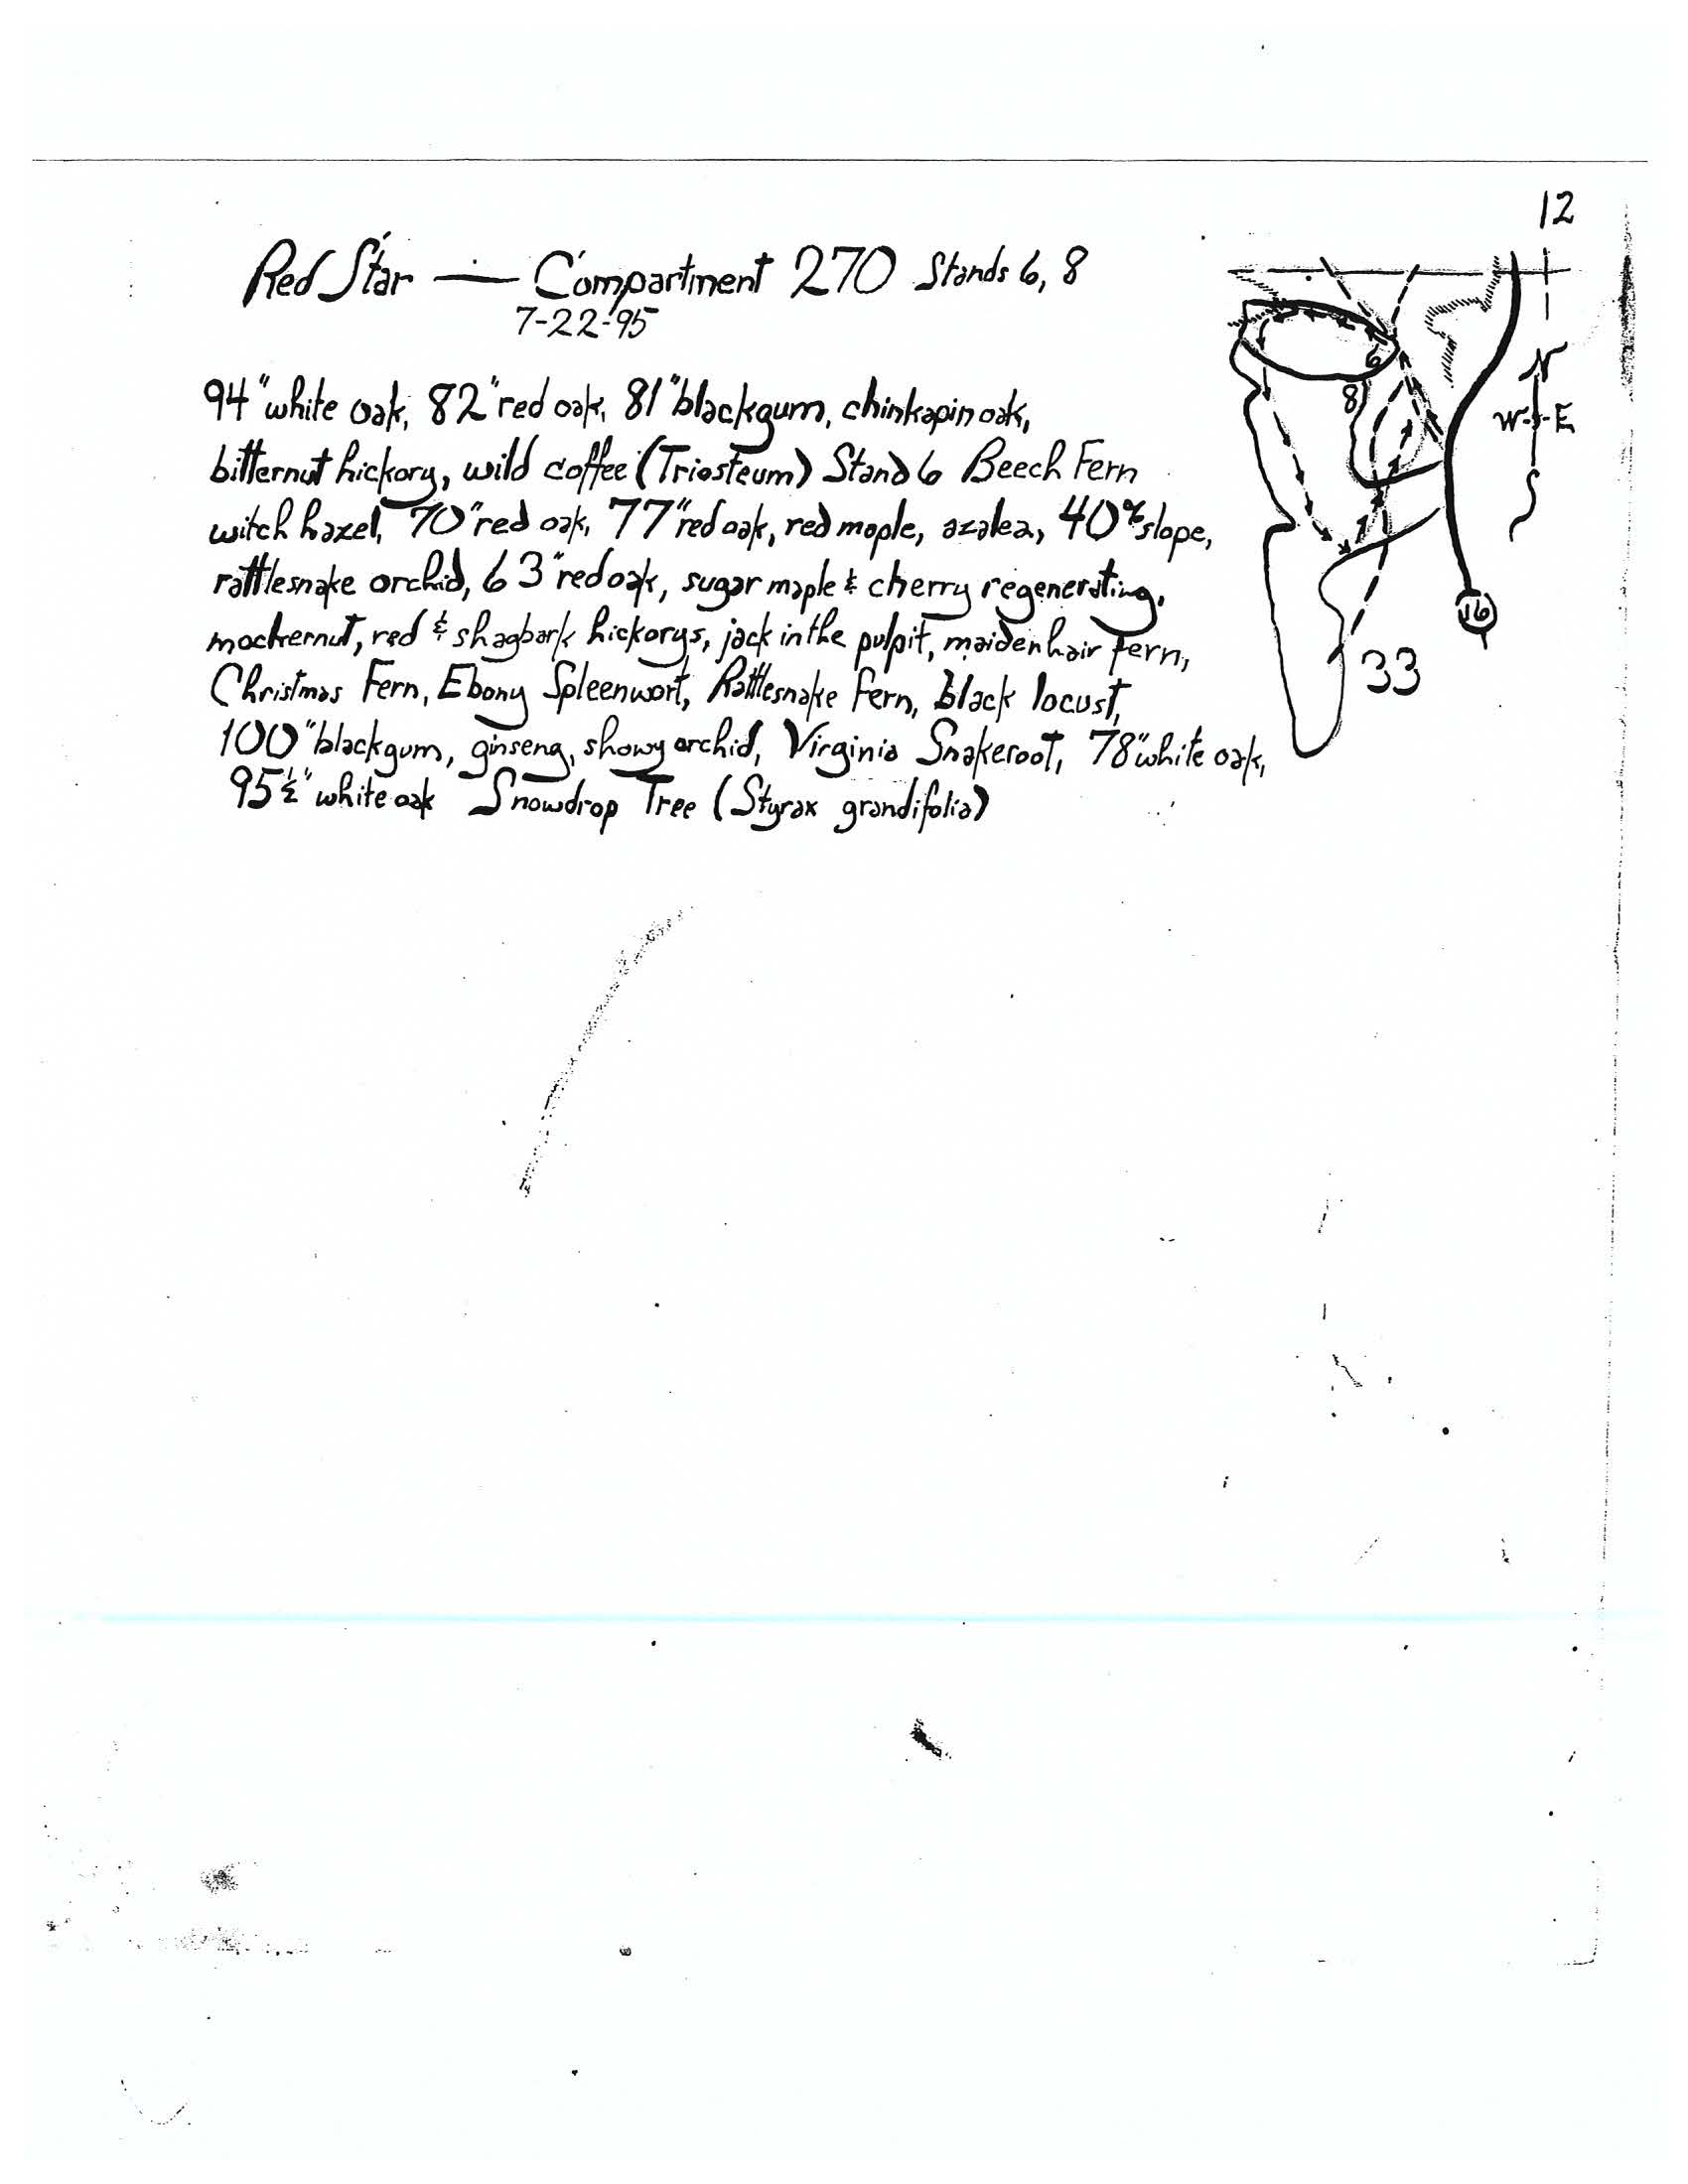 12
Red Star — Compartment 270 Stands 6, 8
7-22-95
94" white oak, 82" red oak, 81" blackgum, chinkapin oak,
bitternut hickory, wild coffee (Triosteum) Stand 6 Beech Fern
witch hazel, 70" red oak, 77" red oak, red maple, azalea, 40% slope,
rattlesnake orchid, 63" red oak, sugar maple & cherry regenerating,
mockernut, red & shagbark hickorys, jack in the pulpit, maidenhair fern,
Christmas Fern, Ebony Spleenwort, Rattlesnake Fern, black locust,
100" blackgum, ginseng, showy orchid, Virginia Snakeroot, 78" white oak,
95½" white oak Snowdrop Tree (Styrax grandifolia)
6
8
N
W E
S
16
33